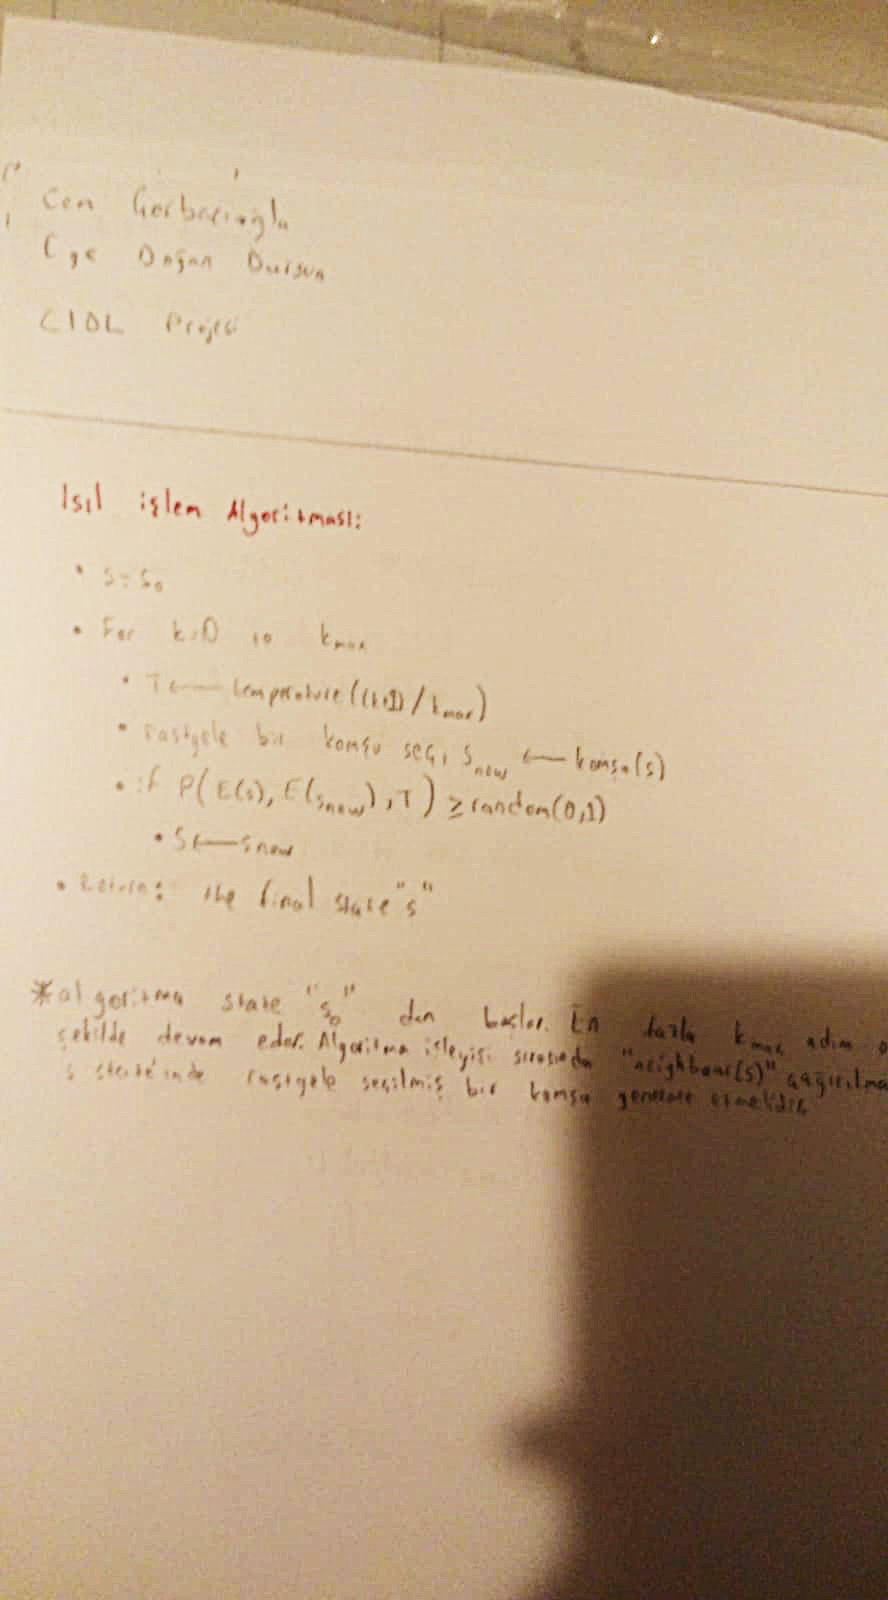 Cem Gorbacıoğlu
Ege Doğan Dursun
CIDL Projesi
Isıl işlem Algoritması:
• s = s₀
• For k=0 to kmax
• T ← temperature((k+1)/kmax)
• rastgele bir komşu seç, snew ← komşu(s)
• if P(E(s), E(snew), T) ≥ random(0,1)
• s ← snew
• Return: the final state "s"
*algoritma state "s₀" dan başlar. En fazla kmax adım
şekilde devam eder. Algoritma işleyişi sırasında "neighbour(s)" çağırılma
s state'inde rastgele seçilmiş bir komşu generate etmelidir